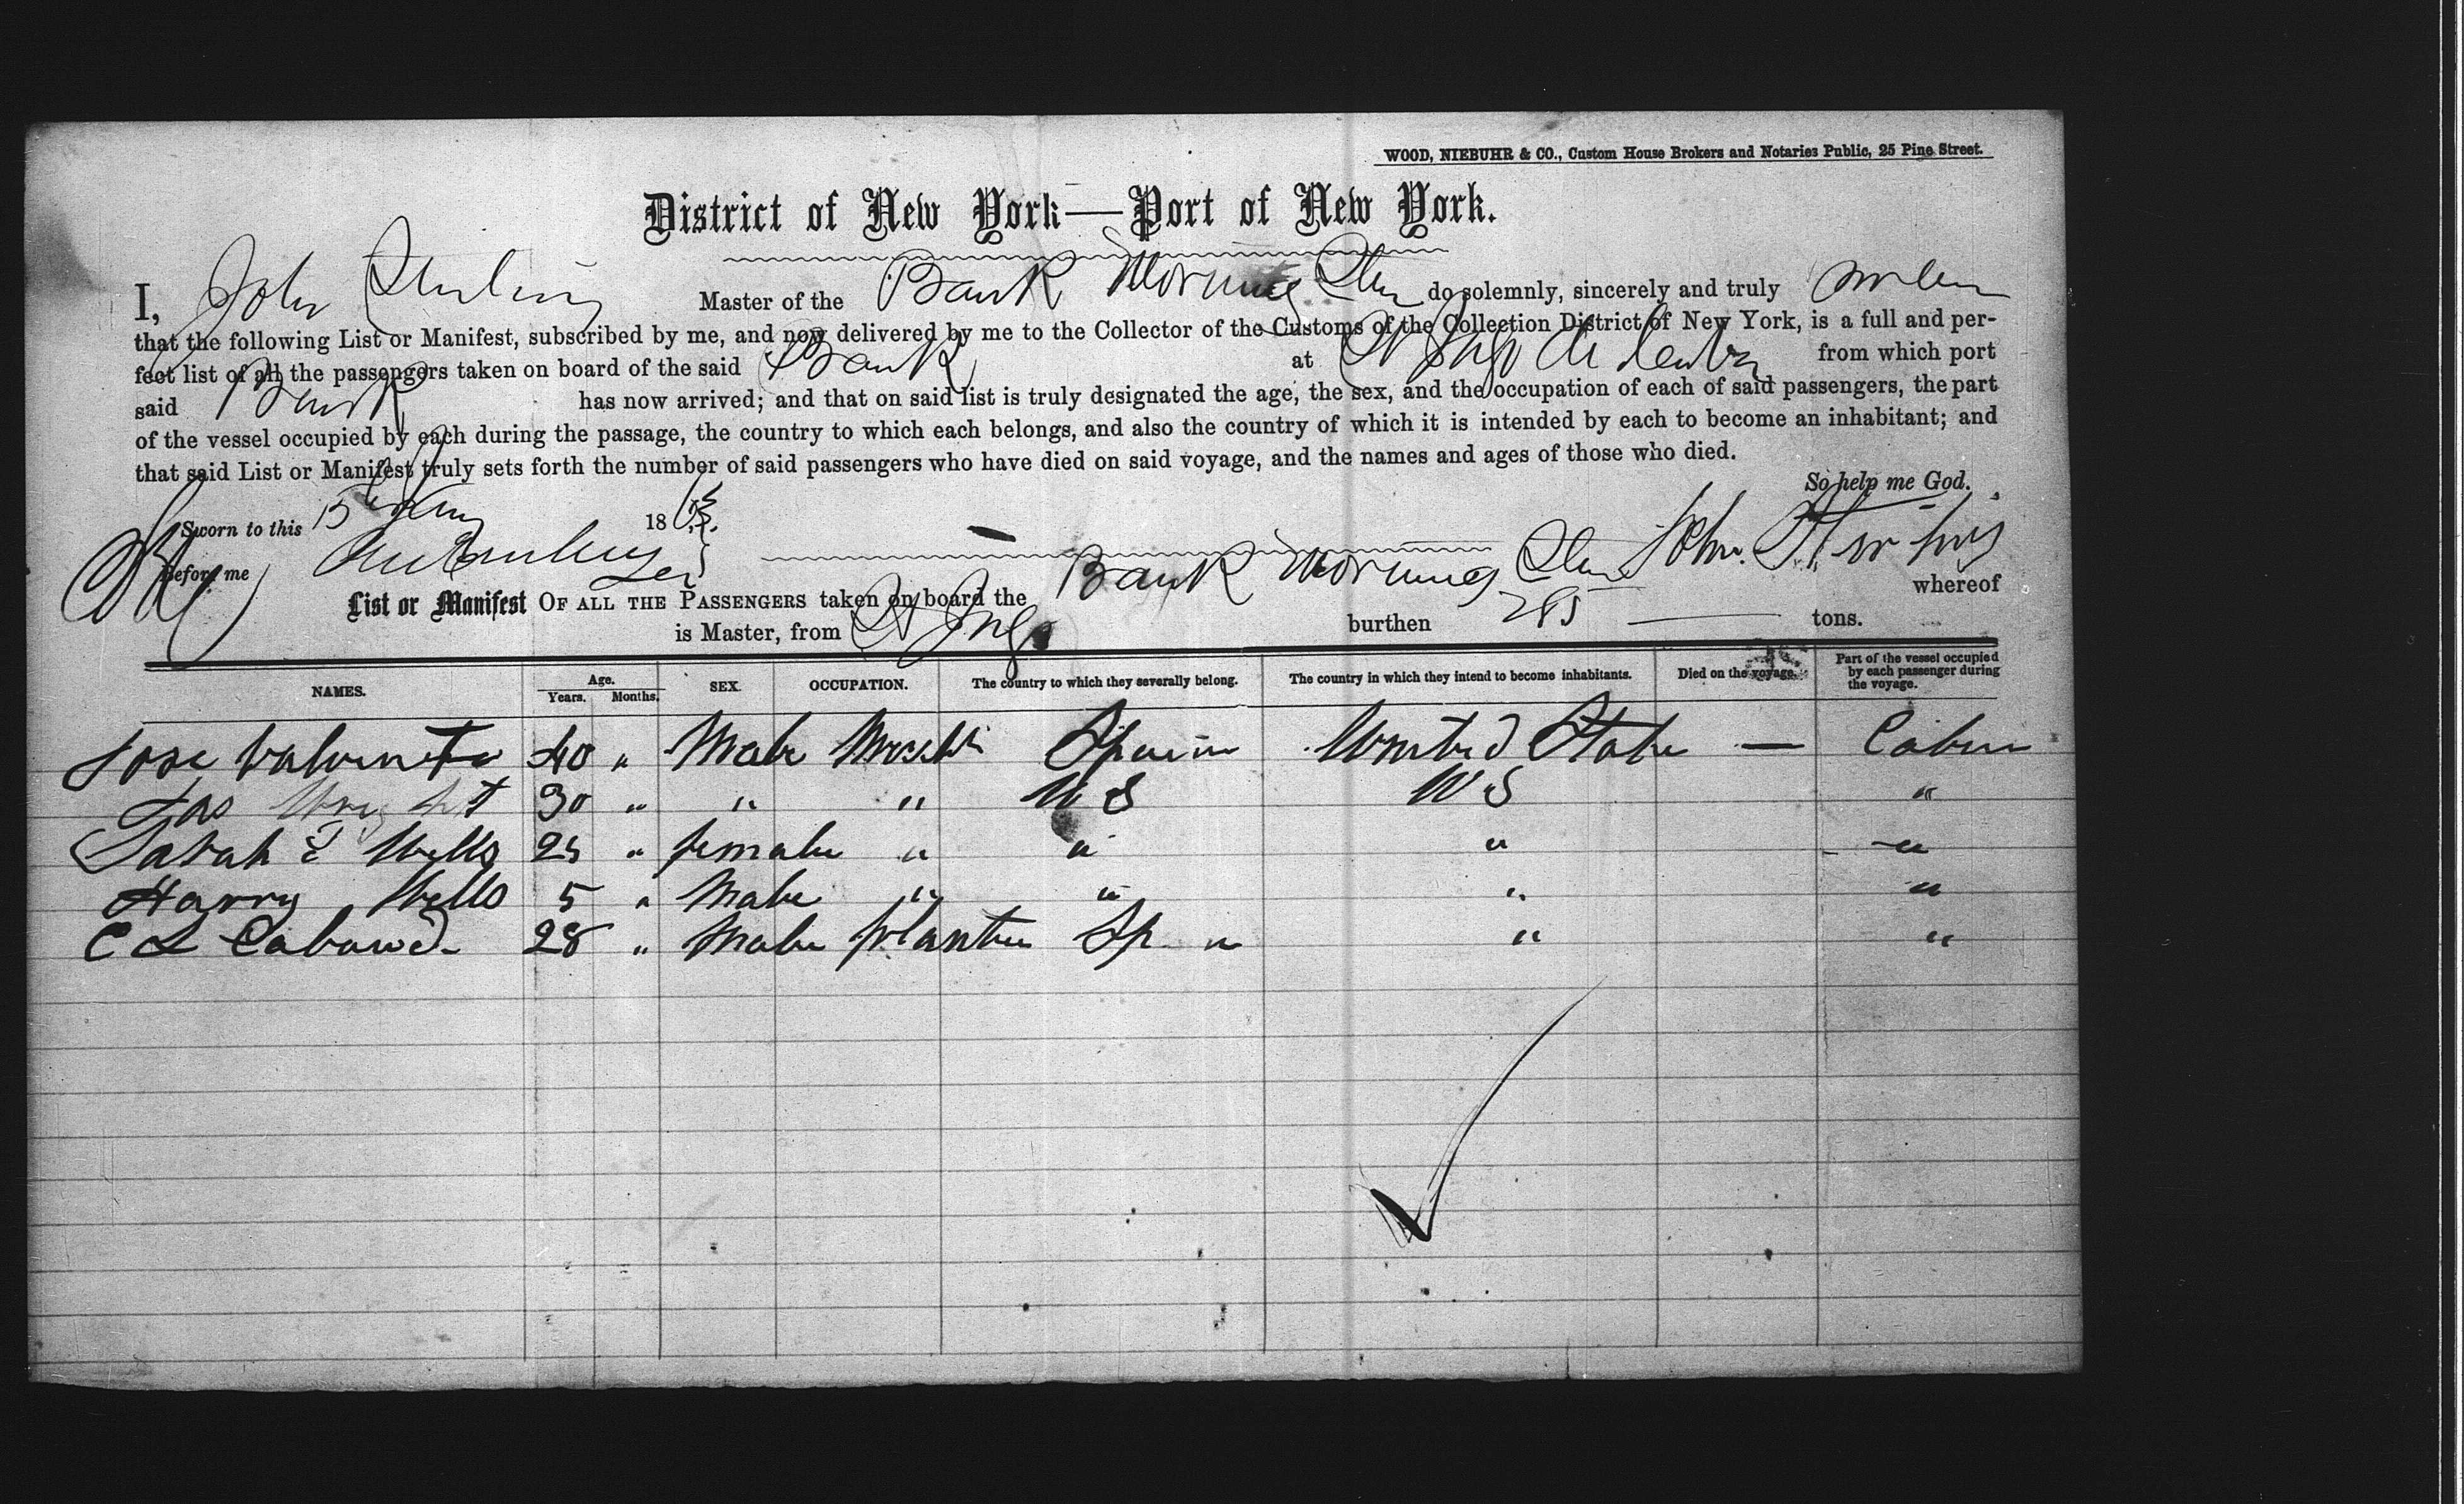 WOOD, NIEBUHR & CO., Custom House Brokers and Notaries Public, 25 Pine Street.
District of New York—Port of New York.
I, John Sterling Master of the Bark Morning Star do solemnly, sincerely and truly swear
that the following List or Manifest, subscribed by me, and now delivered by me to the Collector of the Customs of the Collection District of New York, is a full and per-
fect list of all the passengers taken on board of the said Bark at St Jago de Cuba from which port
said Bark has now arrived; and that on said list is truly designated the age, the sex, and the occupation of each of said passengers, the part
of the vessel occupied by each during the passage, the country to which each belongs, and also the country of which it is intended by each to become an inhabitant; and
that said List or Manifest truly sets forth the number of said passengers who have died on said voyage, and the names and ages of those who died.
So help me God.
Sworn to this 15 186
Before me
John Sterling
List or Manifest OF ALL THE PASSENGERS taken on board the Bark Morning Star whereof
is Master, from St Jago burthen 285 tons.
NAMES. Age. Years. Months. SEX. OCCUPATION. The country to which they severally belong. The country in which they intend to become inhabitants. Died on the voyage. Part of the vessel occupied by each passenger during the voyage.
Jose 40 " Male Spain United State — Cabin
Jas Wright 30 " " " U S U S "
Sarah E Wells 25 " female " " " "
Harry Wells 5 " Male " " " "
C L 28 " Male planter Sp " "